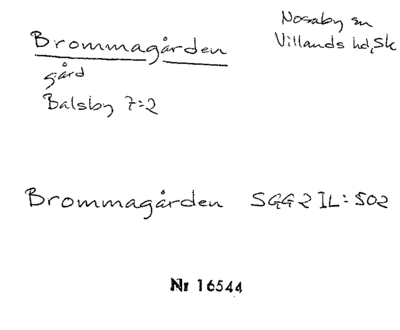 Brommagården
gård
Balsby 7:2
Nosaby sn
Villands hd, Sk
Brommagården SGG 2 IL: 502
Nr 16544